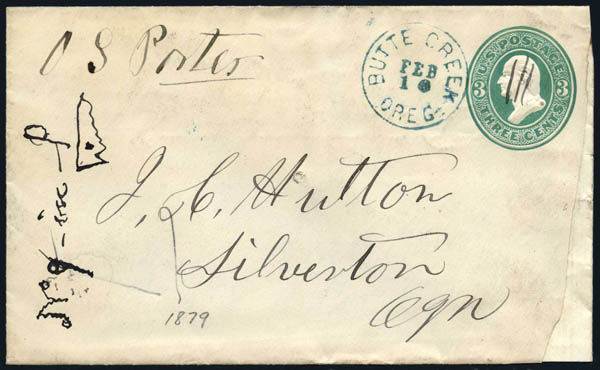 O S Porter
BUTTE CREEK
FEB
OREG.
U.S. POSTAGE
3 3
THREE CENTS
J. C. Hutton
Silverton
Ogn
1879